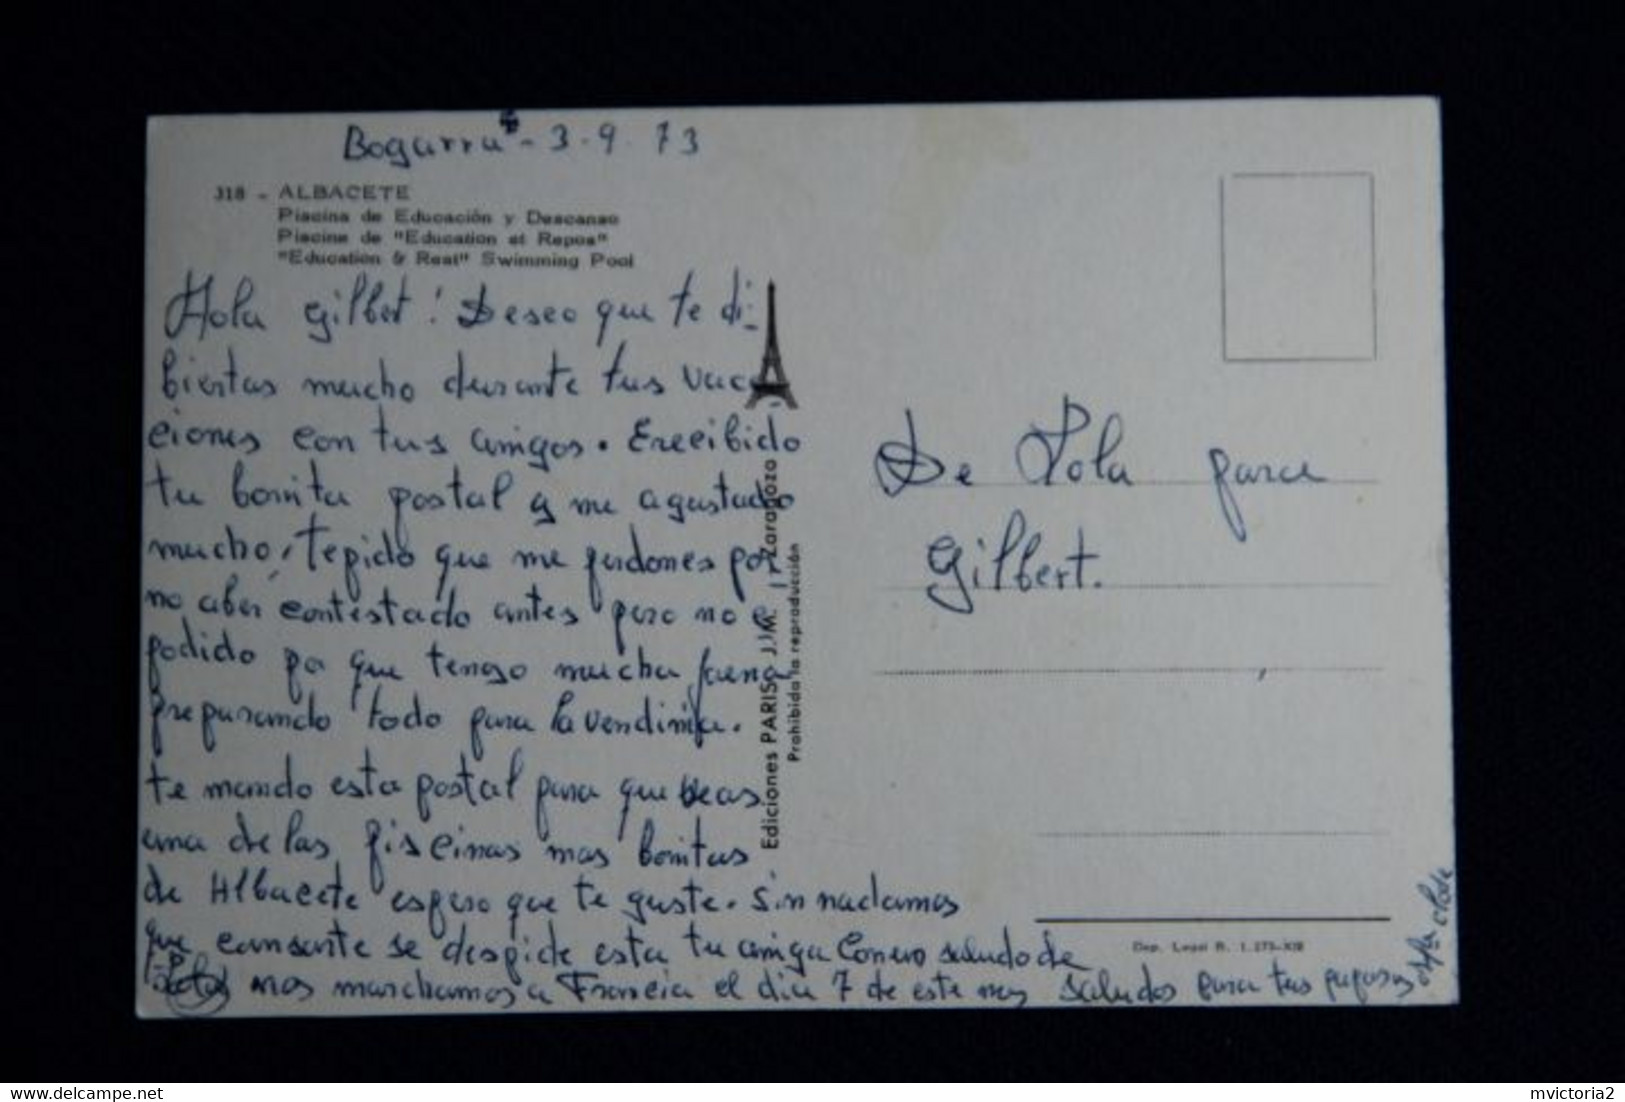 Bogarra - 3-9-73
318 - ALBACETE
Piscina de Educación y Descanso
Piscine de "Education et Repos"
"Education & Rest" Swimming Pool
Hola Gilbert! Deseo que te di-
biertas mucho durante tus vaca-
ciones con tus amigos. Erecibido
tu bonita postal y me agustado
mucho, te pido que me perdones por
no aber contestado antes pero no e
podido pa que tengo mucha faena
preparando todo para la vendimia.
te mando esta postal para que veas
una de las piscinas mas bonitas
de Albacete espero que te guste. Sin nadamas
que cansarte se despide esta tu amiga con un saludo de
Lola
P- nos marchamos a Francia el dia 7 de este mes saludos para tus papas y
Ediciones PARIS J.M. - Zaragoza
Prohibida la reproducción
De Lola para
Gilbert.
Dep. Legal B. 1.273-XIII
www.delcampe.net
mvictoria2